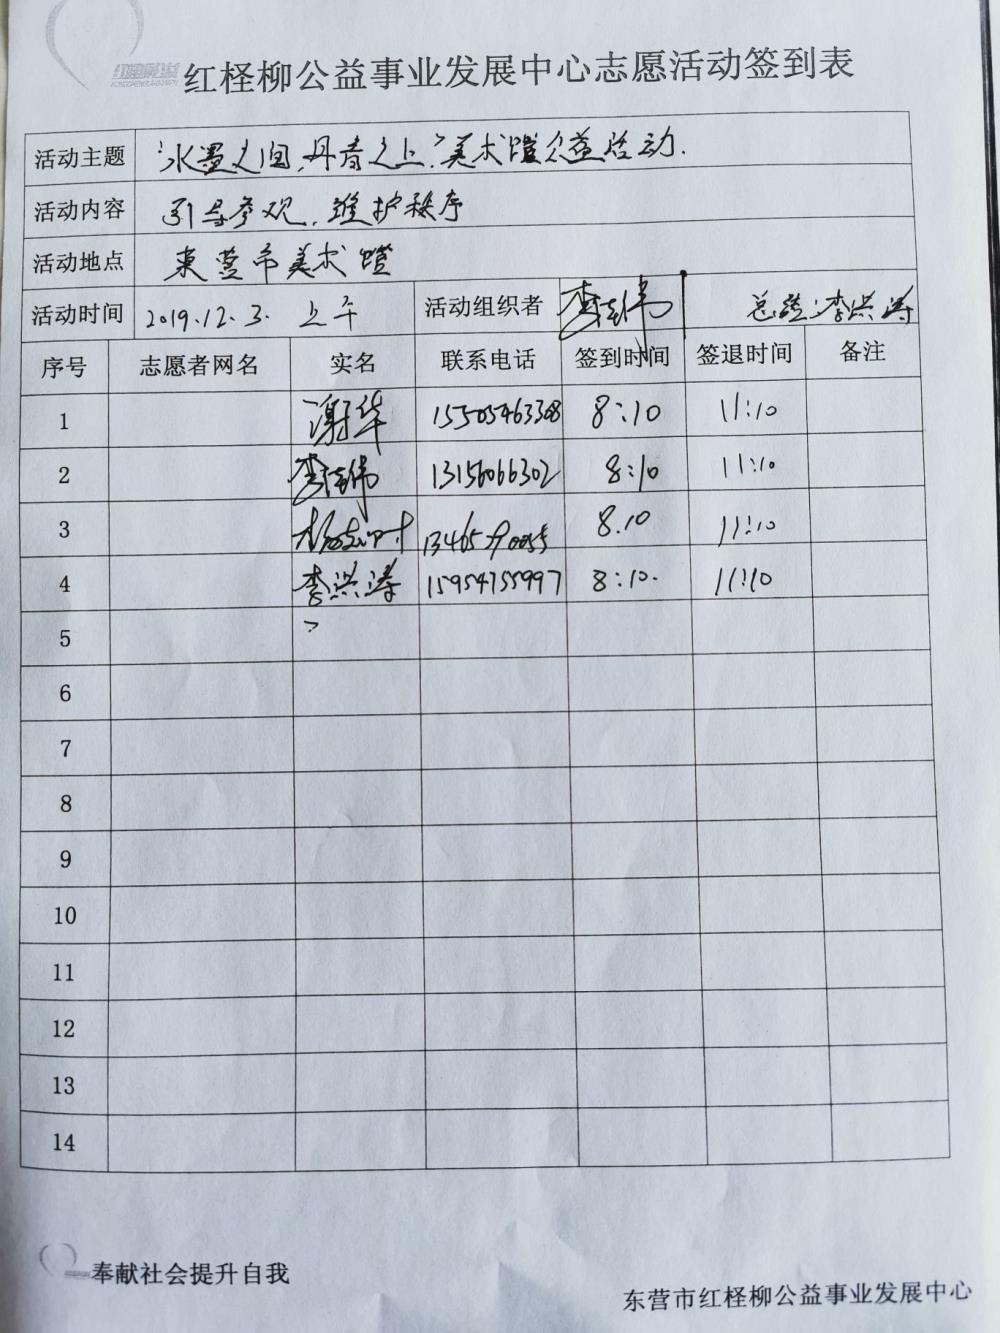 红柽柳公益事业发展中心志愿活动签到表
活动主题 “水墨之间,丹青之上”美术馆公益活动.
活动内容 引导参观、维护秩序
活动地点 東营市美术馆
活动时间 2019.12.3. 上午 活动组织者 总 : 李洪涛
序号 志愿者网名 实名 联系电话 签到时间 签退时间 备注
1 谢华 15505463308 8:10 11:10
2 13156066302 8:10 11:10
3 8.10 11:10
4 李洪涛 15954755997 8:10. 11:10
5
6
7
8
9
10
11
12
13
14
奉献社会提升自我
东营市红柽柳公益事业发展中心